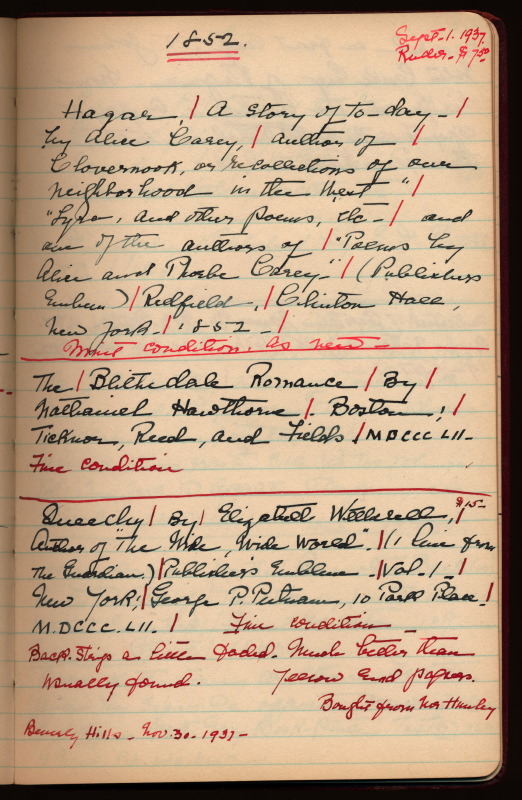 1852.
Sept-1.1937.
Rudder- $7.50
Hagar, | A story of to-day- |
by Alice Carey, | author of |
Clovernook, or recollections of our
neighborhood in the West" |
"Lyra, and other poems, etc- | and
one of the authors of | "Poems by
Alice and Phoebe Carey-" | (Publishers
Emblem) | Redfield, | Clinton Hall,
New York- | 1852- |
Mint condition, as new-
The | Blithedale Romance | By |
Nathaniel Hawthorne |. Boston: |
Ticknor, Reed, and Fields. | MDCCCLII-
Fine condition
$15-
Queechy | By | Elizabeth Wetherell, |
Author of "The Wide, Wide World". | (1 line from
The Guardian,) | Publishers Emblem - | Vol. 1- |
New York: | George P. Putnam, 10 Park Place. |
M.DCCC.LII. | Fine condition-
Back strips a little faded. Much better than
usually found. Yellow end papers.
Bought from
Beverly Hills- Nov.30-1937-